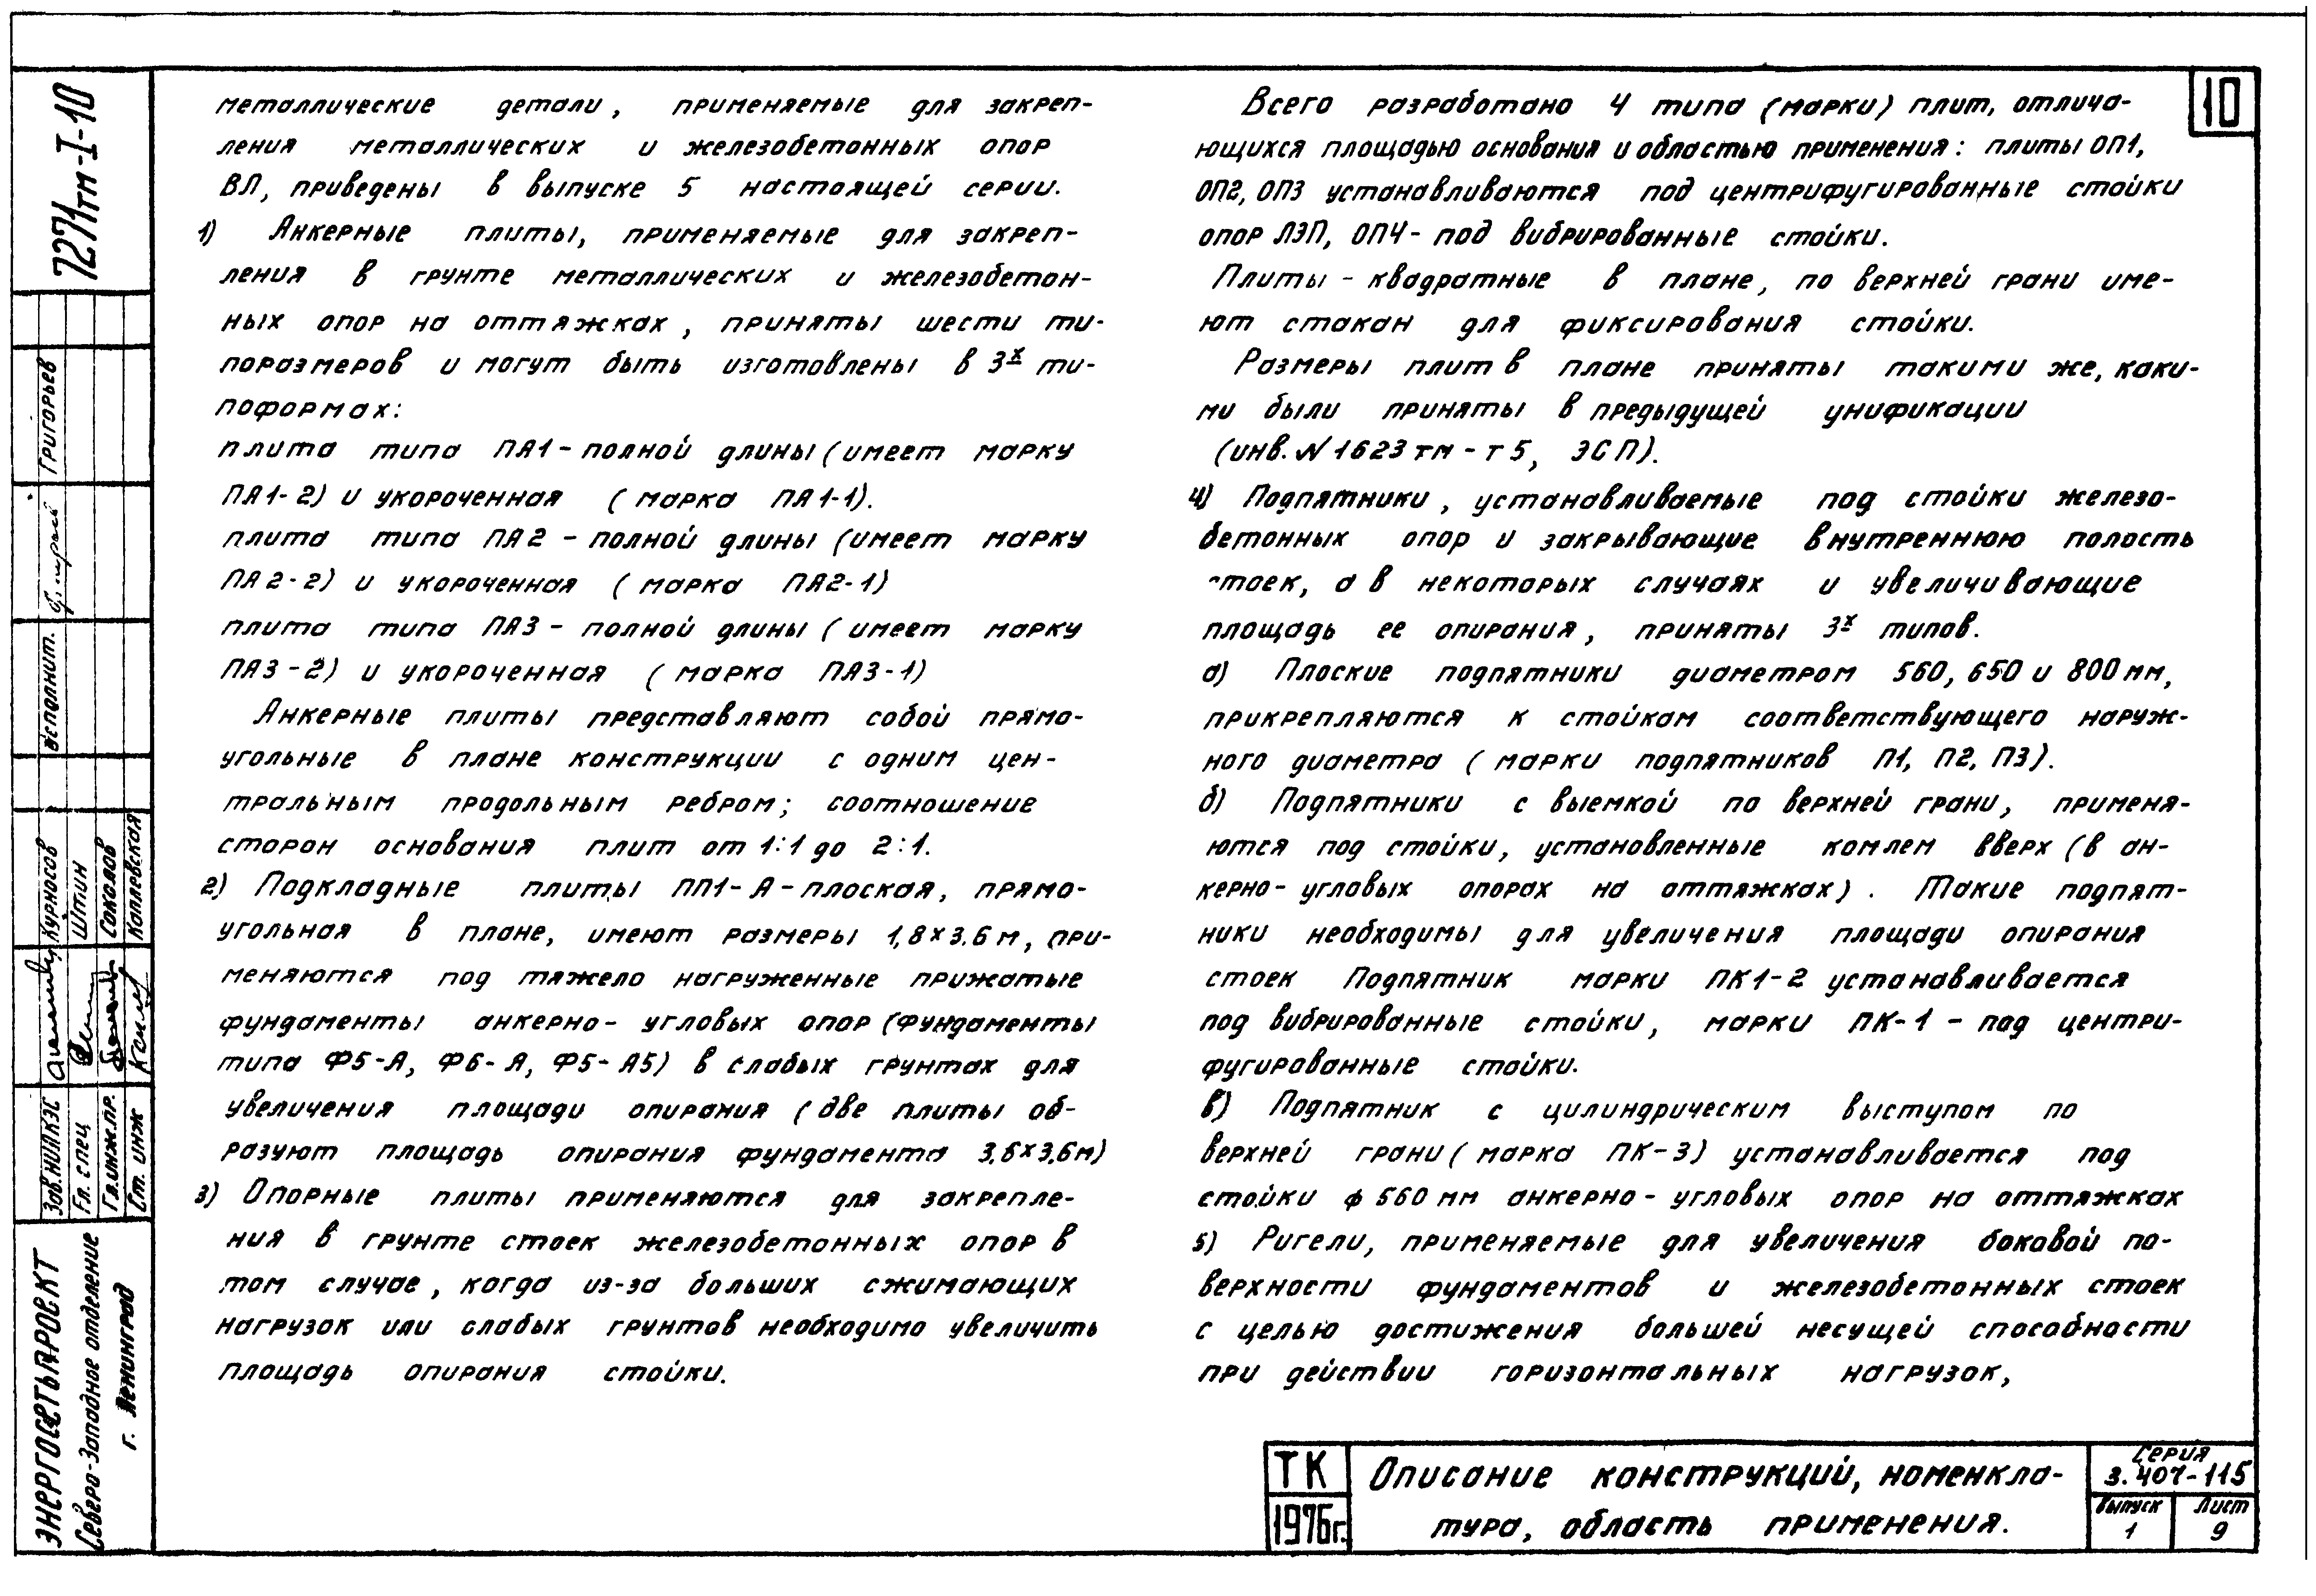 металлические детали, применяемые для закреп-
ления металлических и железобетонных опор
ВЛ, приведены в выпуске 5 настоящей серии.
1) Анкерные плиты, применяемые для закреп-
ления в грунте металлических и железобетон-
ных опор на оттяжках, приняты шести ти-
поразмеров и могут быть изготовлены в 3х ти-
поформах:
плита типа ПА1 - полной длины (имеет марку
ПА1-2) и укороченная (марка ПА1-1).
плита типа ПА2 - полной длины (имеет марку
ПА2-2) и укороченная (марка ПА2-1)
плита типа ПА3 - полной длины (имеет марку
ПА3-2) и укороченная (марка ПА3-1)
Анкерные плиты представляют собой прямо-
угольные в плане конструкции с одним цен-
тральным продольным ребром; соотношение
сторон основания плит от 1:1 до 2:1.
2) Подкладные плиты ПП1-А - плоская, прямо-
угольная в плане, имеют размеры 1,8×3.6 м, при-
меняются под тяжело нагруженные прижатые
фундаменты анкерно-угловых опор (фундаменты
типа Ф5-А, Ф6-А, Ф5-А5) в слабых грунтах для
увеличения площади опирания (две плиты об-
разуют площадь опирания фундамента 3,6×3,6м)
3) Опорные плиты применяются для закрепле-
ния в грунте стоек железобетонных опор в
том случае, когда из-за больших сжимающих
нагрузок или слабых грунтов необходимо увеличить
площадь опирания стойки.
10
Всего разработано 4 типа (марки) плит, отлича-
ющихся площадью основания и областью применения: плиты ОП1,
ОП2, ОП3 устанавливаются под центрифугированные стойки
опор ЛЭП, ОП4 - под вибрированные стойки.
Плиты - квадратные в плане, по верхней грани име-
ют стакан для фиксирования стойки.
Размеры плит в плане приняты такими же, каки-
ми были приняты в предыдущей унификации
(инв. N 1623тм-т5, ЭСП).
4) Подпятники, устанавливаемые под стойки железо-
бетонных опор и закрывающие внутреннюю полость
стоек, а в некоторых случаях и увеличивающие
площадь ее опирания, приняты 3х типов.
а) Плоские подпятники диаметром 560, 650 и 800 мм,
прикрепляются к стойкам соответствующего наруж-
ного диаметра (марки подпятников П1, П2, П3).
б) Подпятники с выемкой по верхней грани, применя-
ются под стойки, установленные комлем вверх (в ан-
керно-угловых опорах на оттяжках). Такие подпят-
ники необходимы для увеличения площади опирания
стоек Подпятник марки ПК1-2 устанавливается
под вибрированные стойки, марки ПК-1 - под центри-
фугированные стойки.
в) Подпятник с цилиндрическим выступом по
верхней грани (марка ПК-3) устанавливается под
стойки ф 560 мм анкерно-угловых опор на оттяжках
5) Ригели, применяемые для увеличения боковой по-
верхности фундаментов и железобетонных стоек
с целью достижения большей несущей способности
при действии горизонтальных нагрузок,
ТК
1976г.
Описание конструкций, номенкла-
тура, область применения.
Серия
3.407-115
Выпуск
1
Лист
9
7271тм-I-10
Григорьев
Исполнит.
Курносов
Штин
Соколов
Зав.НИЛКЭС
Гл. спец
Гл.инж.пр.
Ст. инж
ЭНЕРГОСЕТЬПРОЕКТ
Северо-Западное отделение
г. Ленинград